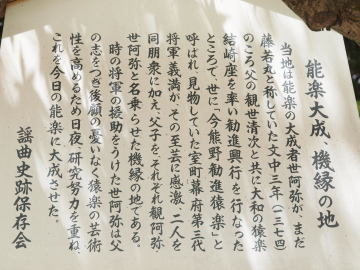 能楽大成、機縁の地
当地は能楽の大成者世阿弥が、まだ
藤若丸と称していた文中三年（一三七四）
のころ父の観世清次と共に大和の猿楽
結崎座を率い勧進興行を行なった
ところで、世に「今熊野勧進猿楽」と
呼ばれ、見物していた室町幕府第三代
将軍義満が、その至芸に感激、二人を
同朋衆に加え、父子を、それぞれ観阿弥
世阿弥と名乗らせた機縁の地である。
時の将軍の援助をうけた世阿弥は父
の志をつぎ後顧の憂いなく猿楽の芸術
性を高めるため日夜、研究努力を重ね、
これを今日の能楽に大成させた。
謡曲史跡保存会